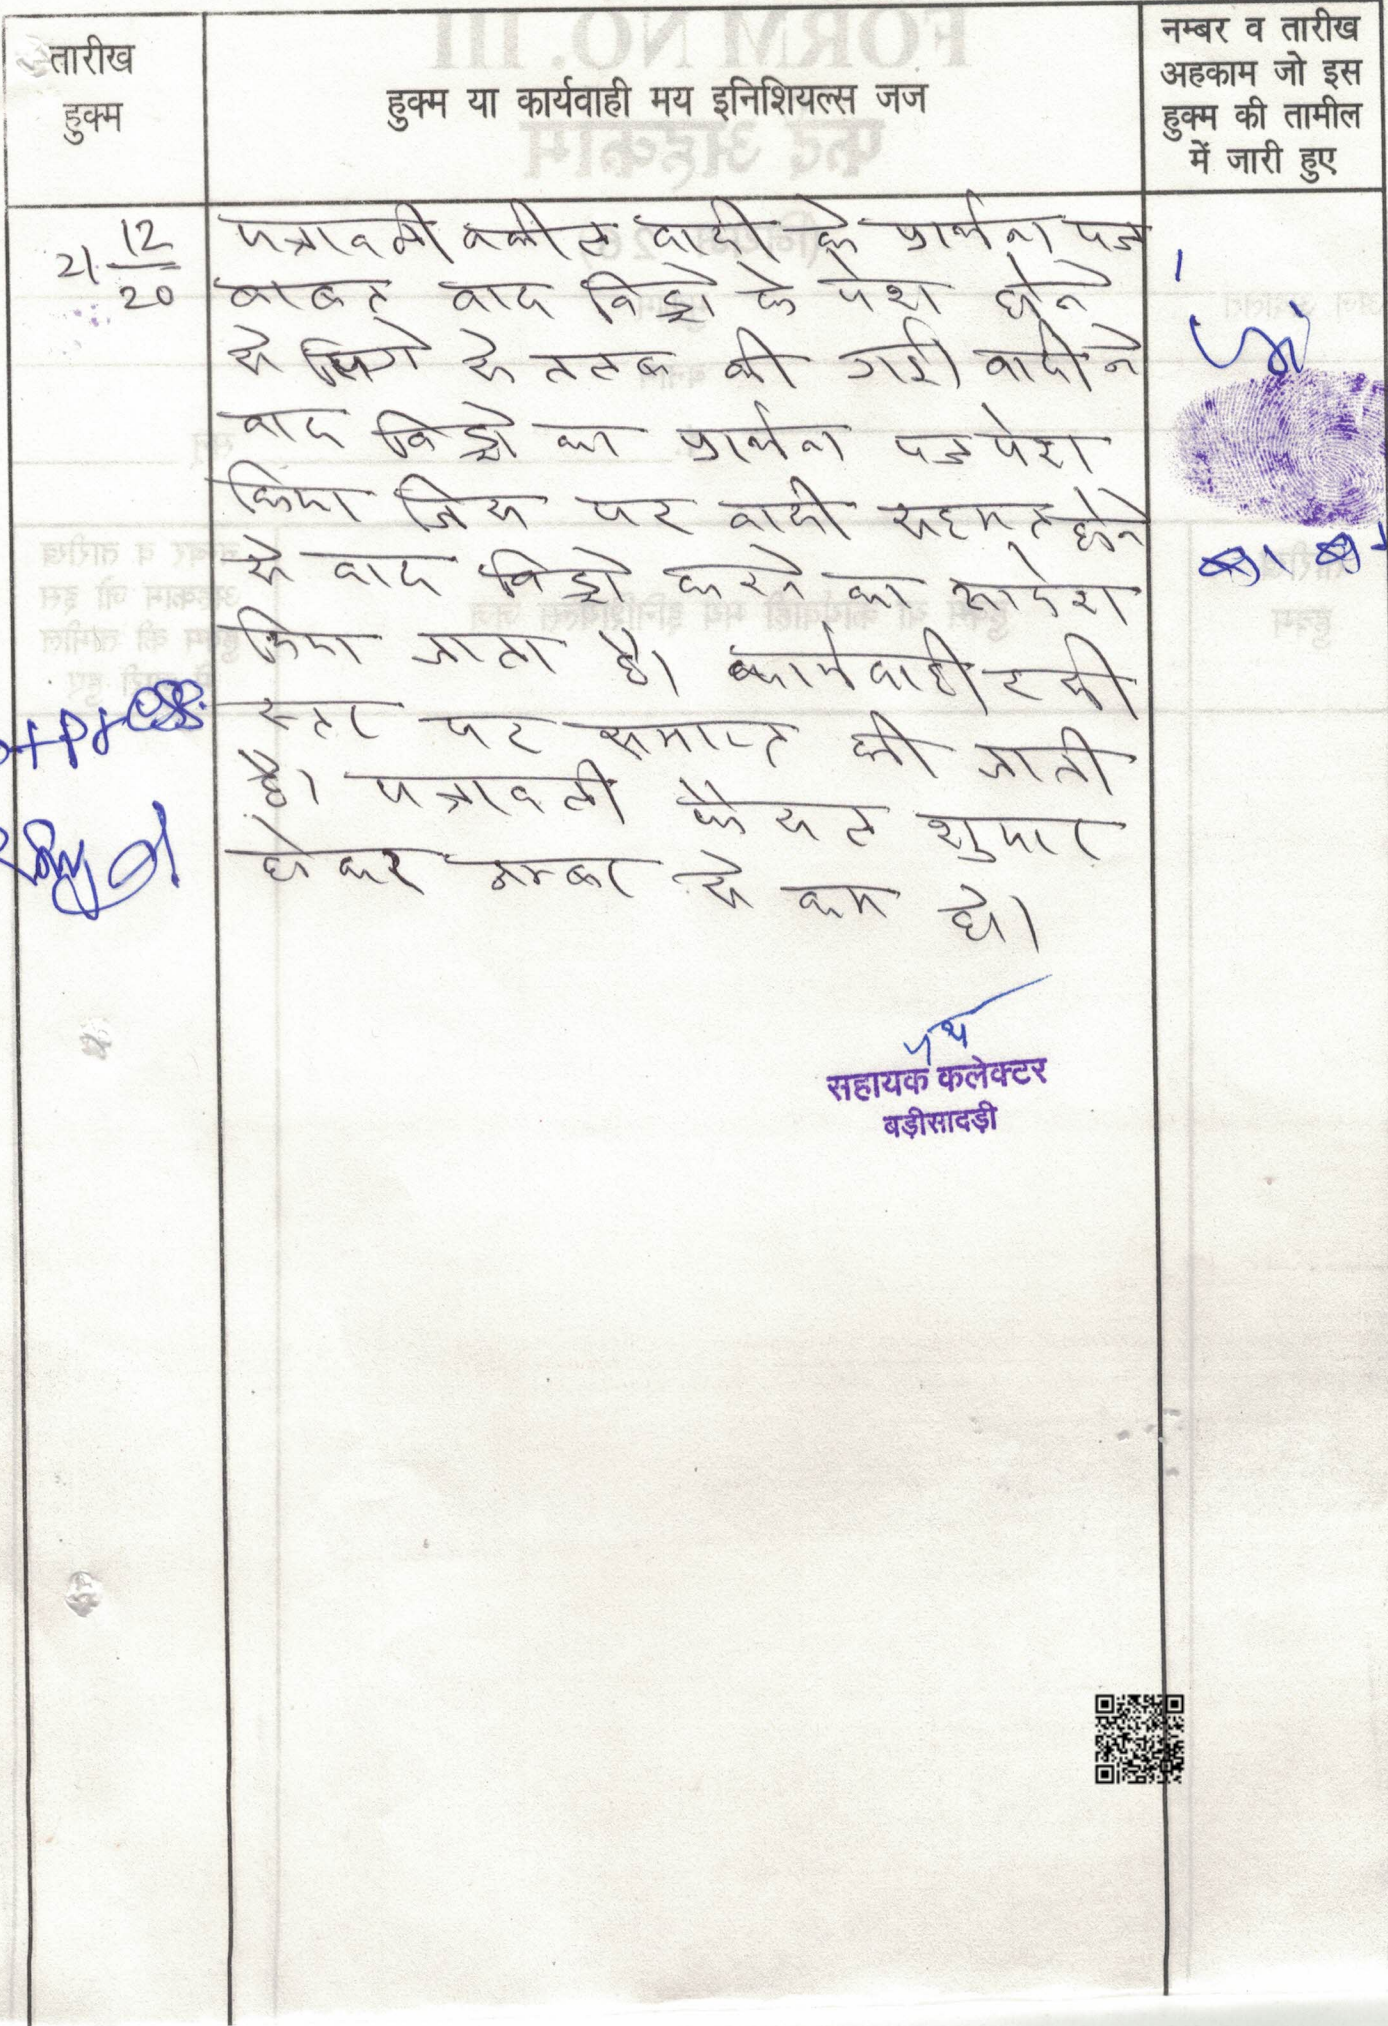 तारीख
हुक्म
हुक्म या कार्यवाही मय इनिशियल्स जज
नम्बर व तारीख
अहकाम जो इस
हुक्म की तामील
में जारी हुए
21 12/20
पत्रावली वकील वादी के प्रार्थना पत्र
बाबत वाद विड्रो के पेश होने
से सिगे से तलब की गई। वादी ने
वाद विड्रो का प्रार्थना पत्र पेश
किया जिस पर वादी सहमत होने
से वाद विड्रो करने का आदेश
किया जाता है। कार्यवाही इसी
स्तर पर समाप्त की जाती
है। पत्रावली फैसल शुमार
होकर नम्बर से कम हो।
सहायक कलेक्टर
बड़ीसादड़ी